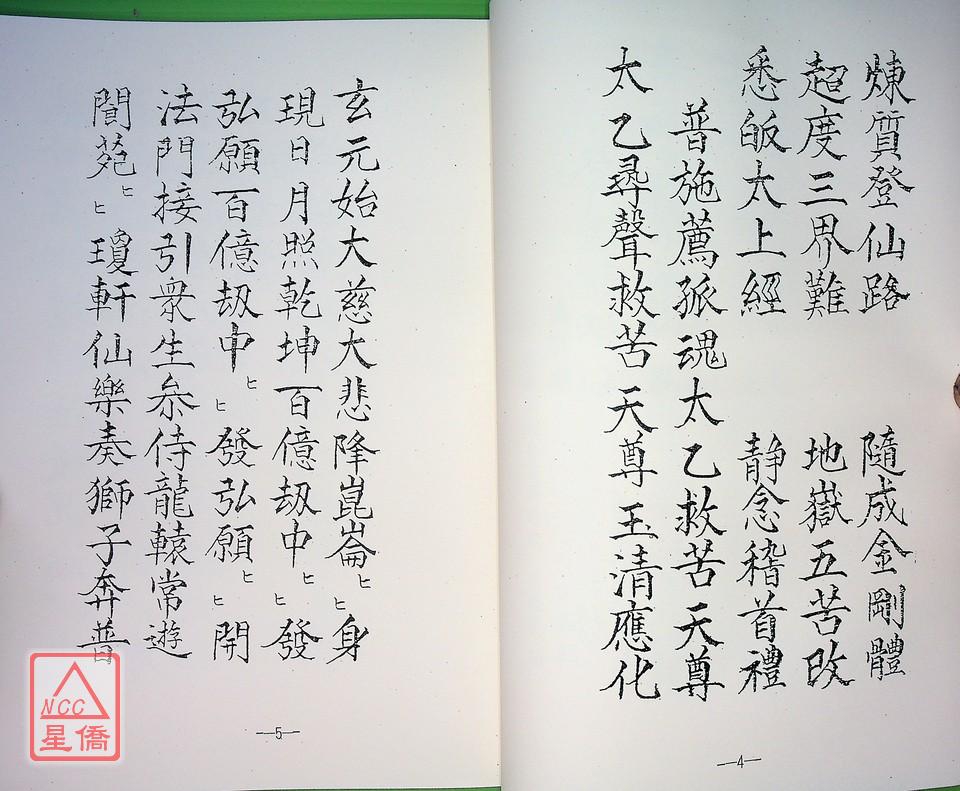 煉質登仙路 隨成金剛體
超度三界難 地嶽五苦改
悉皈太上經 静念稽首禮
普施薦孤魂太乙救苦天尊
太乙尋聲救苦天尊玉清應化
—4—
玄元始大慈大悲降崑崙ヒヒ身
現日月照乾坤百億刼中ヒヒ發
弘願百億刼中ヒヒ發弘願ヒヒ開
法門接引眾生叅侍龍轅常遊
閬苑ヒヒ瓊軒仙樂奏獅子奔普
—5—
NCC
星僑